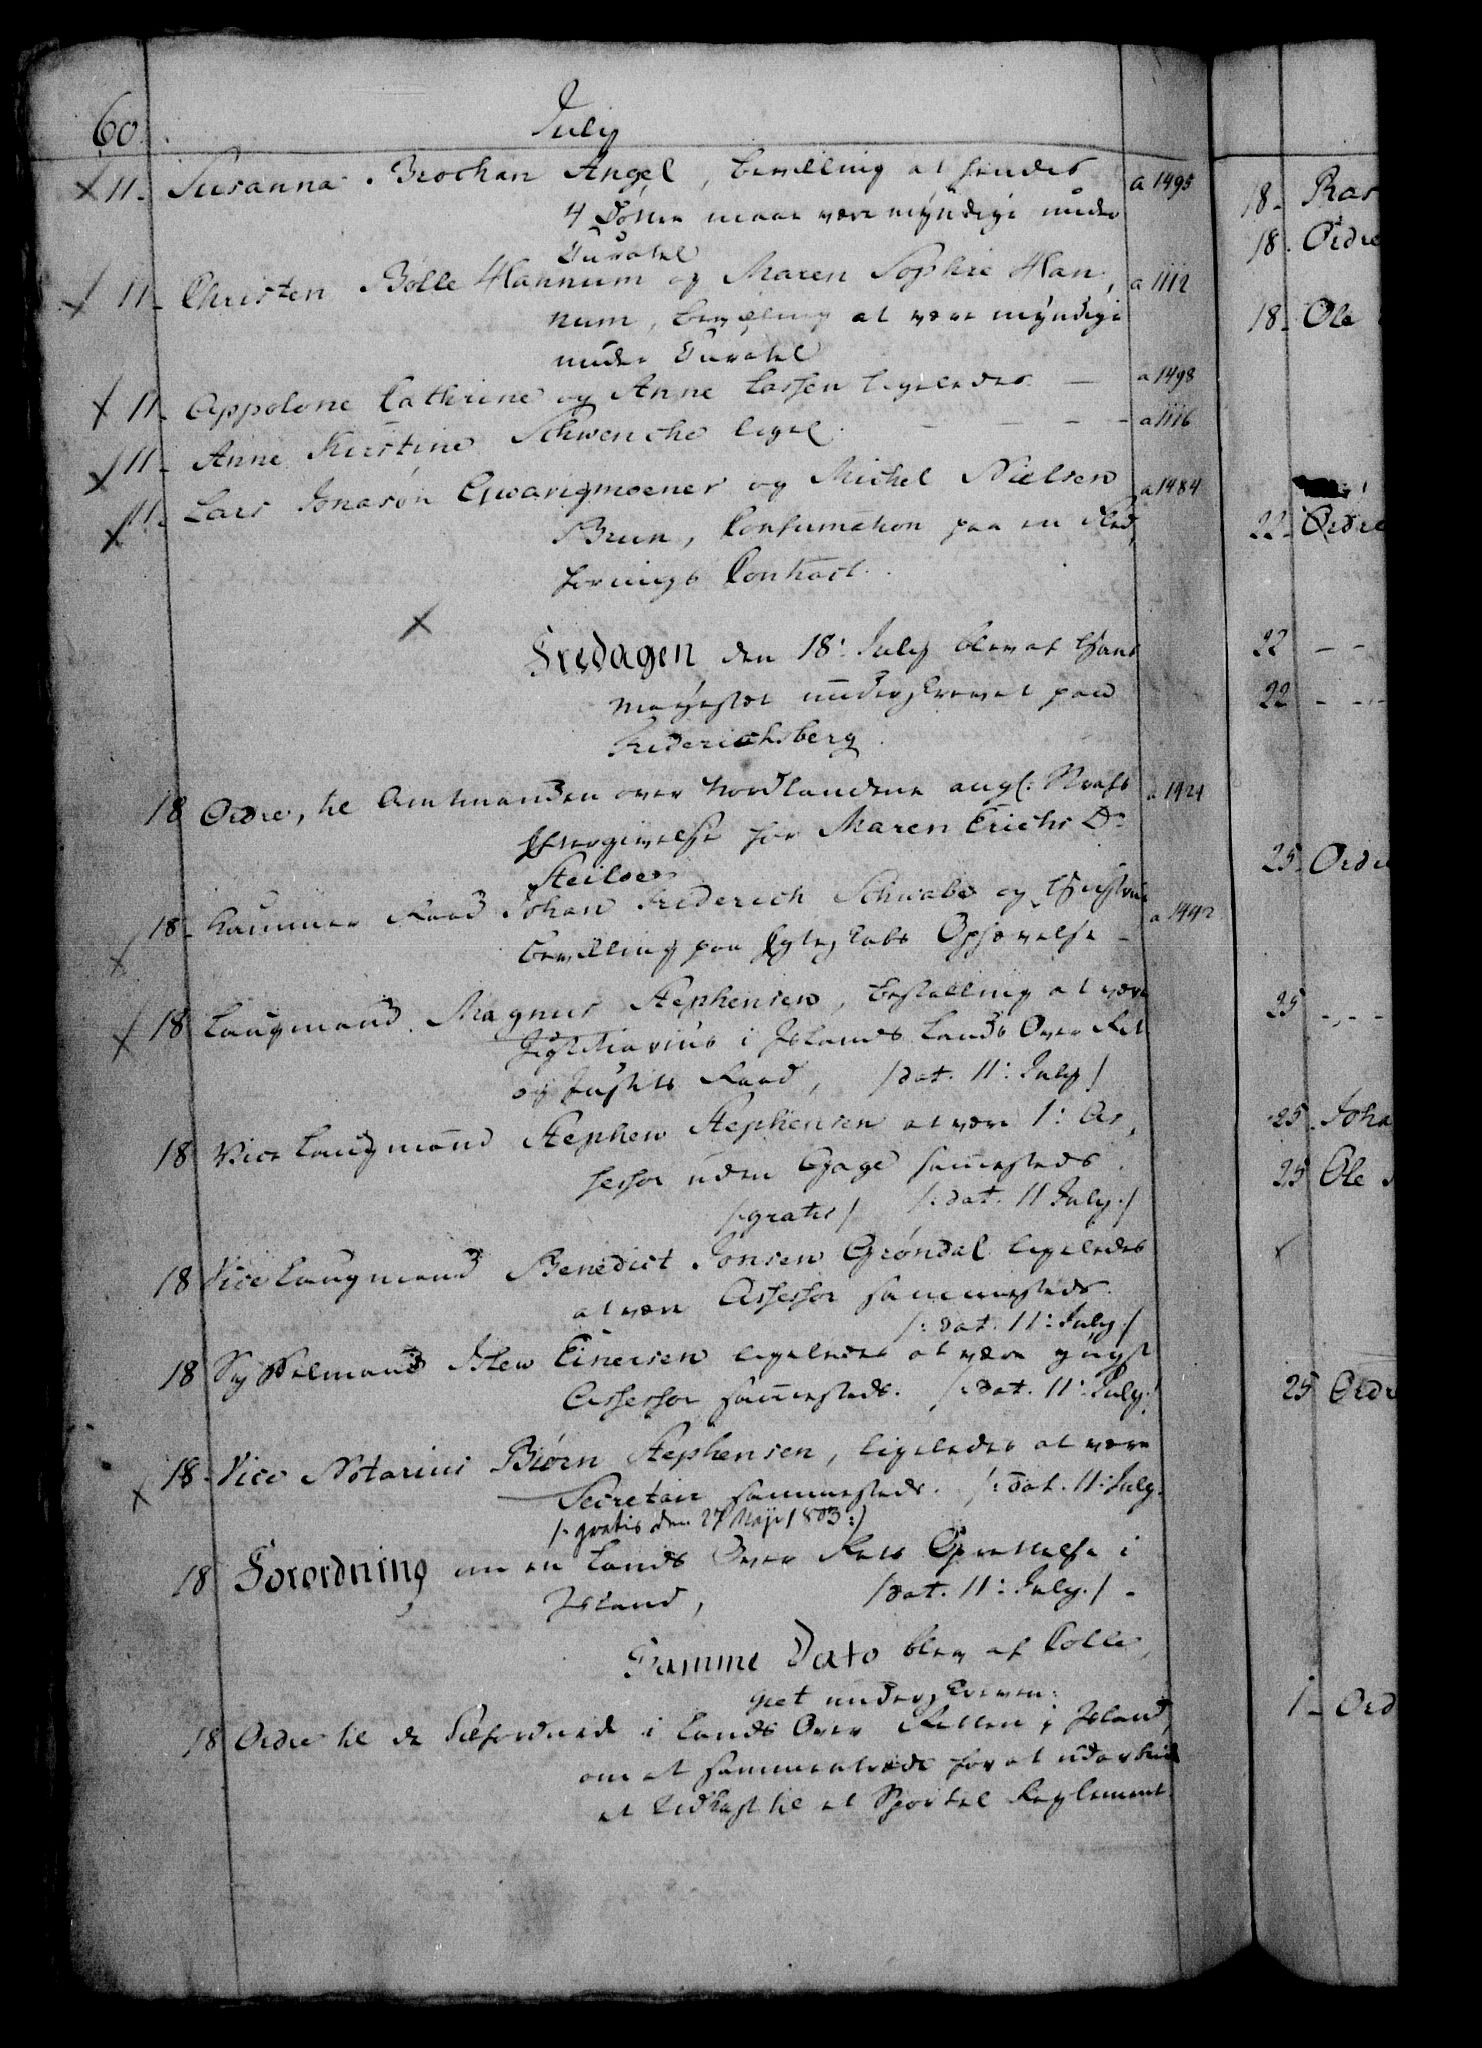 60.
July
11. Susanna Brochan Angel, bevilling at hendes a 1495
4 Sønner maae være myndige under
Curatel
11. Christen Bolle Hannum og Maren Sophie Han, a 1112
num, bevilling at være myndige
under Curatel
11. Appolone Cathrine og Anne Lassen ligeledes — a 1498
11. Anne Kirstine Schwencke ligel. — — — — a 1116
11. Lars Jonasøn og Michel Nielsen a 1484
Bruun, Confirmation paa en
Contract.
Fredagen den 18: July blev af Hans
Majestet underskrevet paa
Friderichsberg.
18 Ordre, til Amtmanden over Nordlandene ang: Straffs a 1424
Eftergivelse for Maren Erichs Dr
18. Kammer Raad Johan Friderich Schwabe og Hustrue a 1442
bevilling paa Egteskabs Ophævelse —
18 Laugmand Magnus Stephensen, bestalling at være
Justitiarius i Islands Lands Over Ret
og Justits Raad, /dat. 11: July/
18 Vice Laugmand Stephen Stephensen at være 1: As,
sessor uden Gage sammesteds.
/: gratis / /: dat. 11 July :/
18 Vice Laugmand Benedict Jonsen Grøndal ligeledes
at være Assessor sammesteds.
/: dat. 11: July :/
18 Sysselmand Isleu Einersen ligeledes at være yngst
Assessor sammesteds. /: dat. 11: July :/
18. Vice Notarius Biørn Stephensen, ligeledes at være
Secretair sammesteds. /: dat. 11: July.
/: gratis den 27 Maji 1803 :/
18 Forordning om en Lands Over Rets Oprettelse i
Island, /dat. 11: July. / .
Samme Dato blev af Colle,
giet underskreven:
18 Ordre til de Tilforordnede i Lands Over Retten i Island,
om at sammentræde for at udarbeide
et Udkast til et Sportel Reglement
18. Ras
18. Ordre
18. Ole
22. Ordre
22 — —
22 — —
25. Ordre
25 — —
25. Joha
25 Ole
25 Ordr
1. Ord